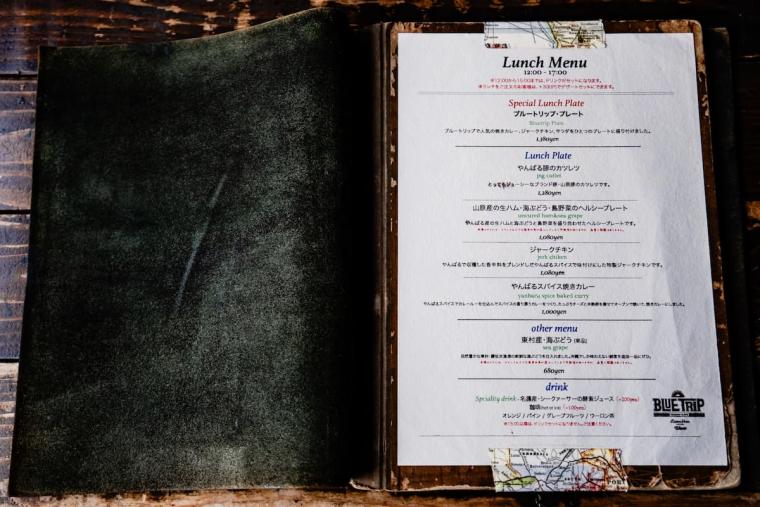 Lunch Menu
12:00 - 17:00
※12:00から15:00までは、ドリンクがセットになります。
Special Lunch Plate
ブルートリップ・プレート
Bluetrip Plate
ブルートリップで人気の焼きカレー、ジャークチキン、サラダをひとつのプレートに盛り付けました。
1,380yen
Lunch Plate
やんばる豚のカツレツ
pig cutlet
とってもジューシーなブランド豚・山原豚のカツレツです。
1,280yen
山原産の生ハム・海ぶどう・島野菜のヘルシープレート
uncured ham&sea grape
やんばる産の生ハムと海ぶどうと島野菜を盛り合わせたヘルシープレートです。
1,080yen
ジャークチキン
jerk chiken
やんばるで収穫した香辛料をブレンドしたやんばるスパイスで味付けにした特製ジャークチキンです。
1,080yen
やんばるスパイス焼きカレー
yanbaru spice baked curry
1,000yen
other menu
東村産・海ぶどう (単品)
sea grape
680yen
drink
Speciality drink - 名護産・シークァーサーの酵素ジュース (+200yen)
珈琲(hot or ice) (+100yen)
オレンジ / パイン / グレープフルーツ / ウーロン茶
※15:00以降は、ドリンクセットになりません。ご注意ください。
BLUE TRiP